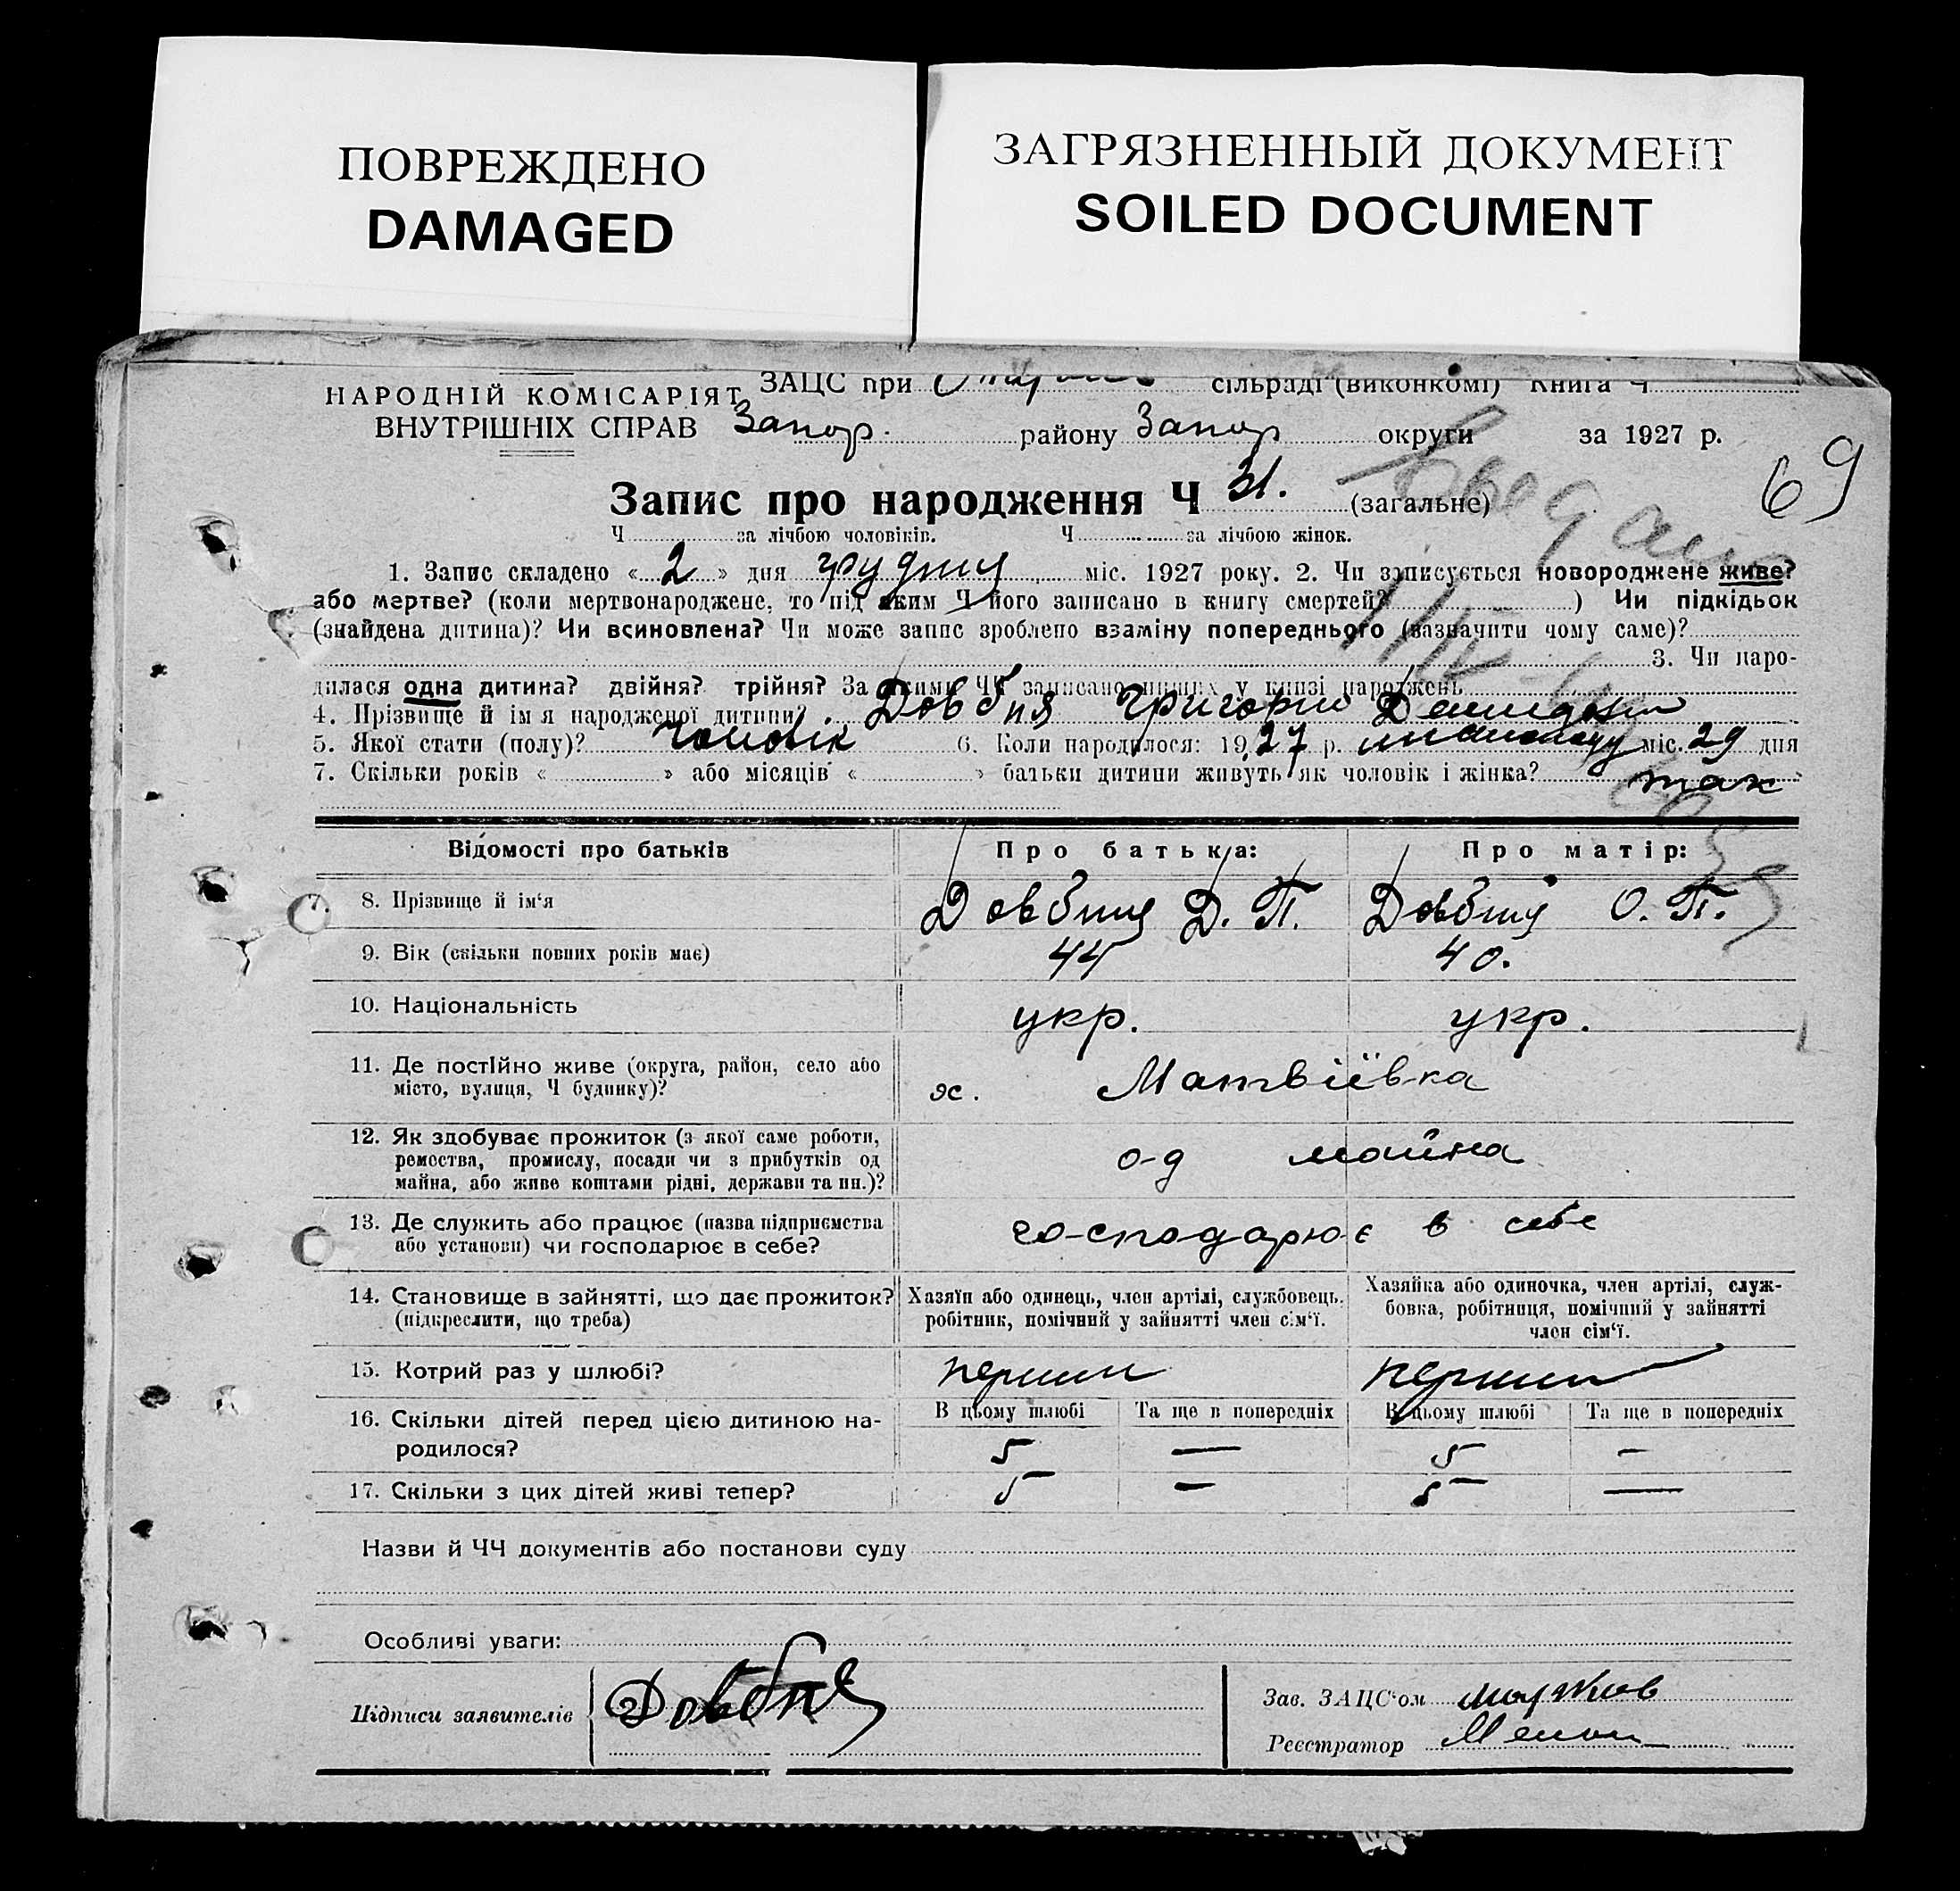 ПОВРЕЖДЕНО
DAMAGED
ЗАГРЯЗНЕННЫЙ ДОКУМЕНТ
SOILED DOCUMENT
НАРОДНІЙ КОМІСАРІЯТ
ВНУТРІШНІХ СПРАВ
ЗАЦС при сільраді (виконкомі) Книга Ч
Запор. району Запор округи за 1927 р.
69
Запис про народження Ч 31. (загальне)
Ч за лічбою чоловіків. Ч за лічбою жінок.
1. Запис складено « 2 » дня грудня міс. 1927 року. 2. Чи записується новороджене живе?
або мертве? (коли мертвонароджене, то під яким Ч його записано в книгу смертей? ) Чи підкідьок
(знайдена дитина)? Чи всиновлена? Чи може запис зроблено взаміну попереднього (зазначити чому саме)?
3. Чи наро-
дилася одна дитина? двійня? трійня? За якими ЧЧ записано инших у книзі народжень
4. Прізвище й ім'я народженої дитини? Довбня Григорій
5. Якої стати (полу)? чоловік 6. Коли народилося: 1927 р. листопаду міс. 29 дня
7. Скільки років « » або місяців « » батьки дитини живуть як чоловік і жінка? так
Відомості про батьків Про батька: Про матір:
8. Прізвище й ім'я Довбня Д. П. Довбня О. П.
9. Вік (скільки повних років має) 44 40.
10. Національність укр. укр.
11. Де постійно живе (округа, район, село або
місто, вулиця, Ч будинку)? Матвіївка
12. Як здобуває прожиток (з якої саме роботи,
ремества, промислу, посади чи з прибутків од
майна, або живе коштами рідні, держави та ин.)? од майна
13. Де служить або працює (назва підприємства
або установи) чи господарює в себе? господарює в себе
14. Становище в зайнятті, що дає прожиток?
(підкреслити, що треба)
Хазяїн або одинець, член артілі, службовець,
робітник, помічний у зайнятті член сім'ї.
Хазяйка або одиночка, член артілі, служ-
бовка, робітниця, помічний у зайнятті
член сім'ї.
15. Котрий раз у шлюбі? перший перший
16. Скільки дітей перед цією дитиною на-
родилося?
В цьому шлюбі Та ще в попередніх В цьому шлюбі Та ще в попередніх
5 — 5 —
17. Скільки з цих дітей живі тепер? 5 — 5 —
Назви й ЧЧ документів або постанови суду
Особливі уваги:
Підписи заявителів Довбня
Зав. ЗАЦС'ом
Реєстратор